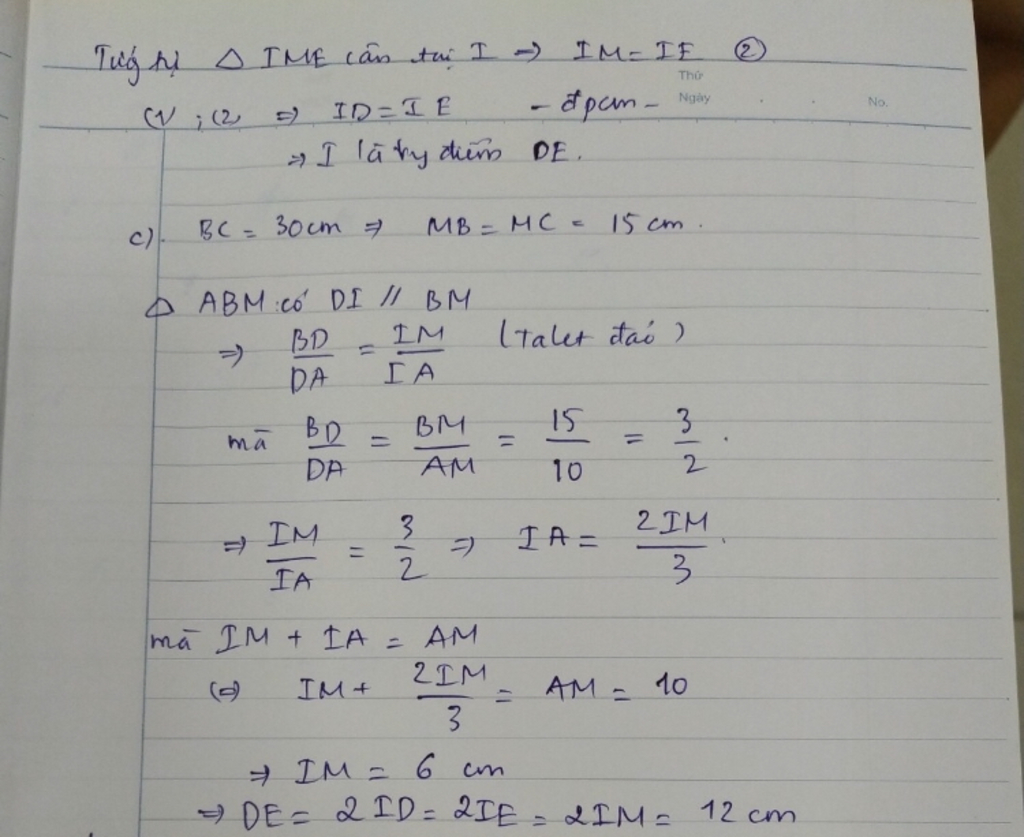 Tương tự △ IME cân tại I ⇒ IM = IE ②
Thứ
Ngày No.
(1) ; (2) ⇒ ID = IE - đpcm -
⇒ I là tr điểm DE.
c). BC = 30cm ⇒ MB = MC = 15 cm.
△ ABM có DI // BM
⇒ BD/DA = IM/IA (Talet đảo)
mà BD/DA = BM/AM = 15/10 = 3/2.
⇒ IM/IA = 3/2 ⇒ IA = 2IM/3.
mà IM + IA = AM
(⇒) IM + 2IM/3 = AM = 10
⇒ IM = 6 cm
⇒ DE = 2ID = 2IE = 2IM = 12 cm